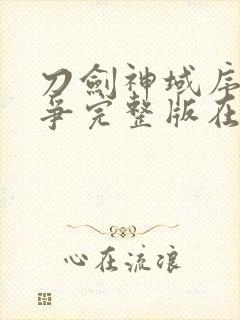 刀劍神域序
爭完整版在
心在流浪